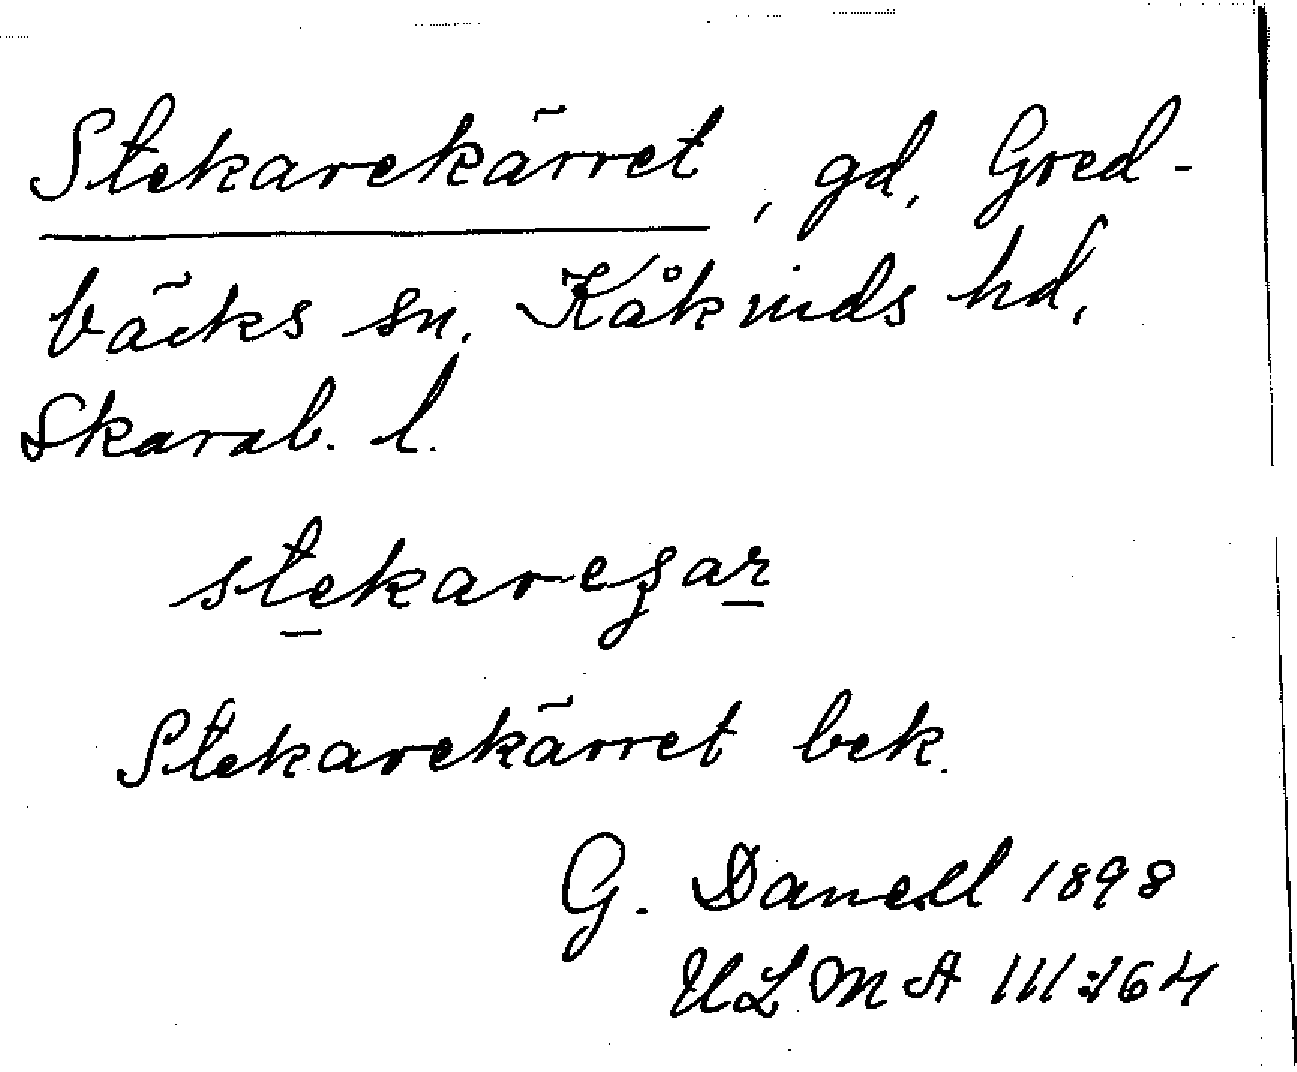 Stekarekärret, gd, Gred-
bäcks sn. Kåkinds hd,
Skarab. l.
stekareʒar
Stekarekärret bek.
G. Danell 1898
ULMA III:164